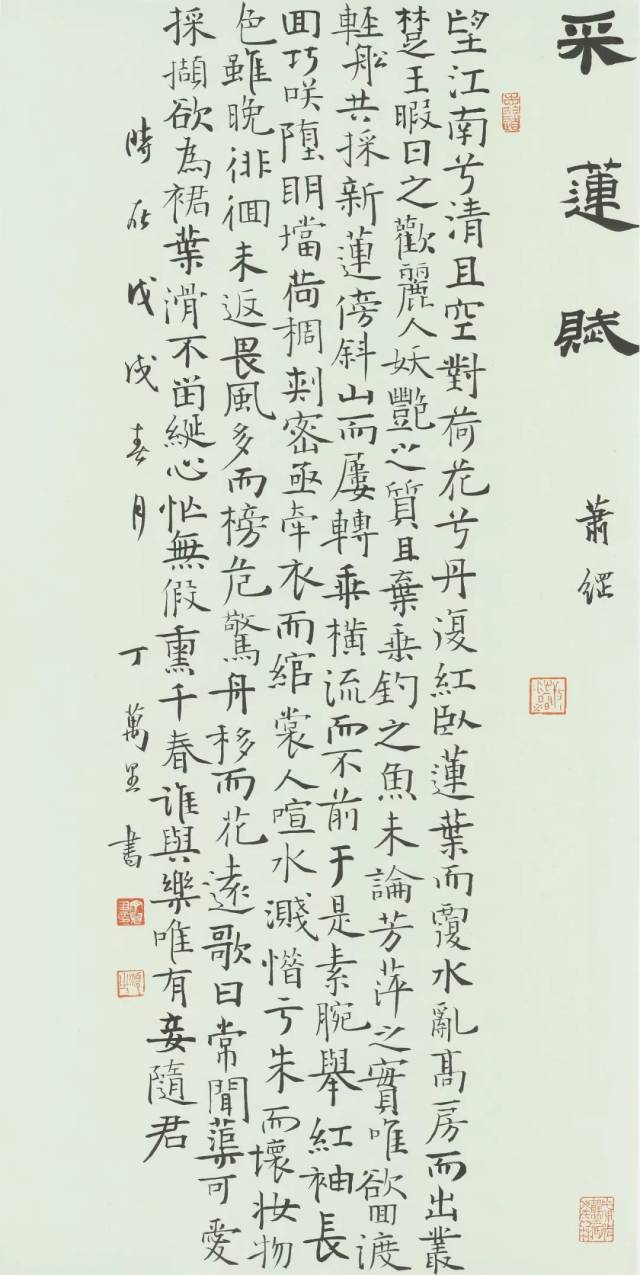 采蓮賦
蕭綱
望江南兮清且空對荷花兮丹復紅臥蓮葉而覆水亂高房而出叢
楚王暇日之歡麗人妖艷之質且棄垂釣之魚未論芳萍之實唯欲回渡
輕船共採新蓮傍斜山而屢轉乘橫流而不前于是素腕舉紅袖長
回巧咲墮明璫荷稠刺密亟牽衣而綰裳人喧水濺惜亏朱而壞妝物
色雖晚徘徊未返畏風多而榜危驚舟移而花遠歌曰常聞蕖可愛
採擷欲為裙葉滑不留綖心忙無假熏千春誰與樂唯有妾隨君
時在戊戌春月 丁萬里書